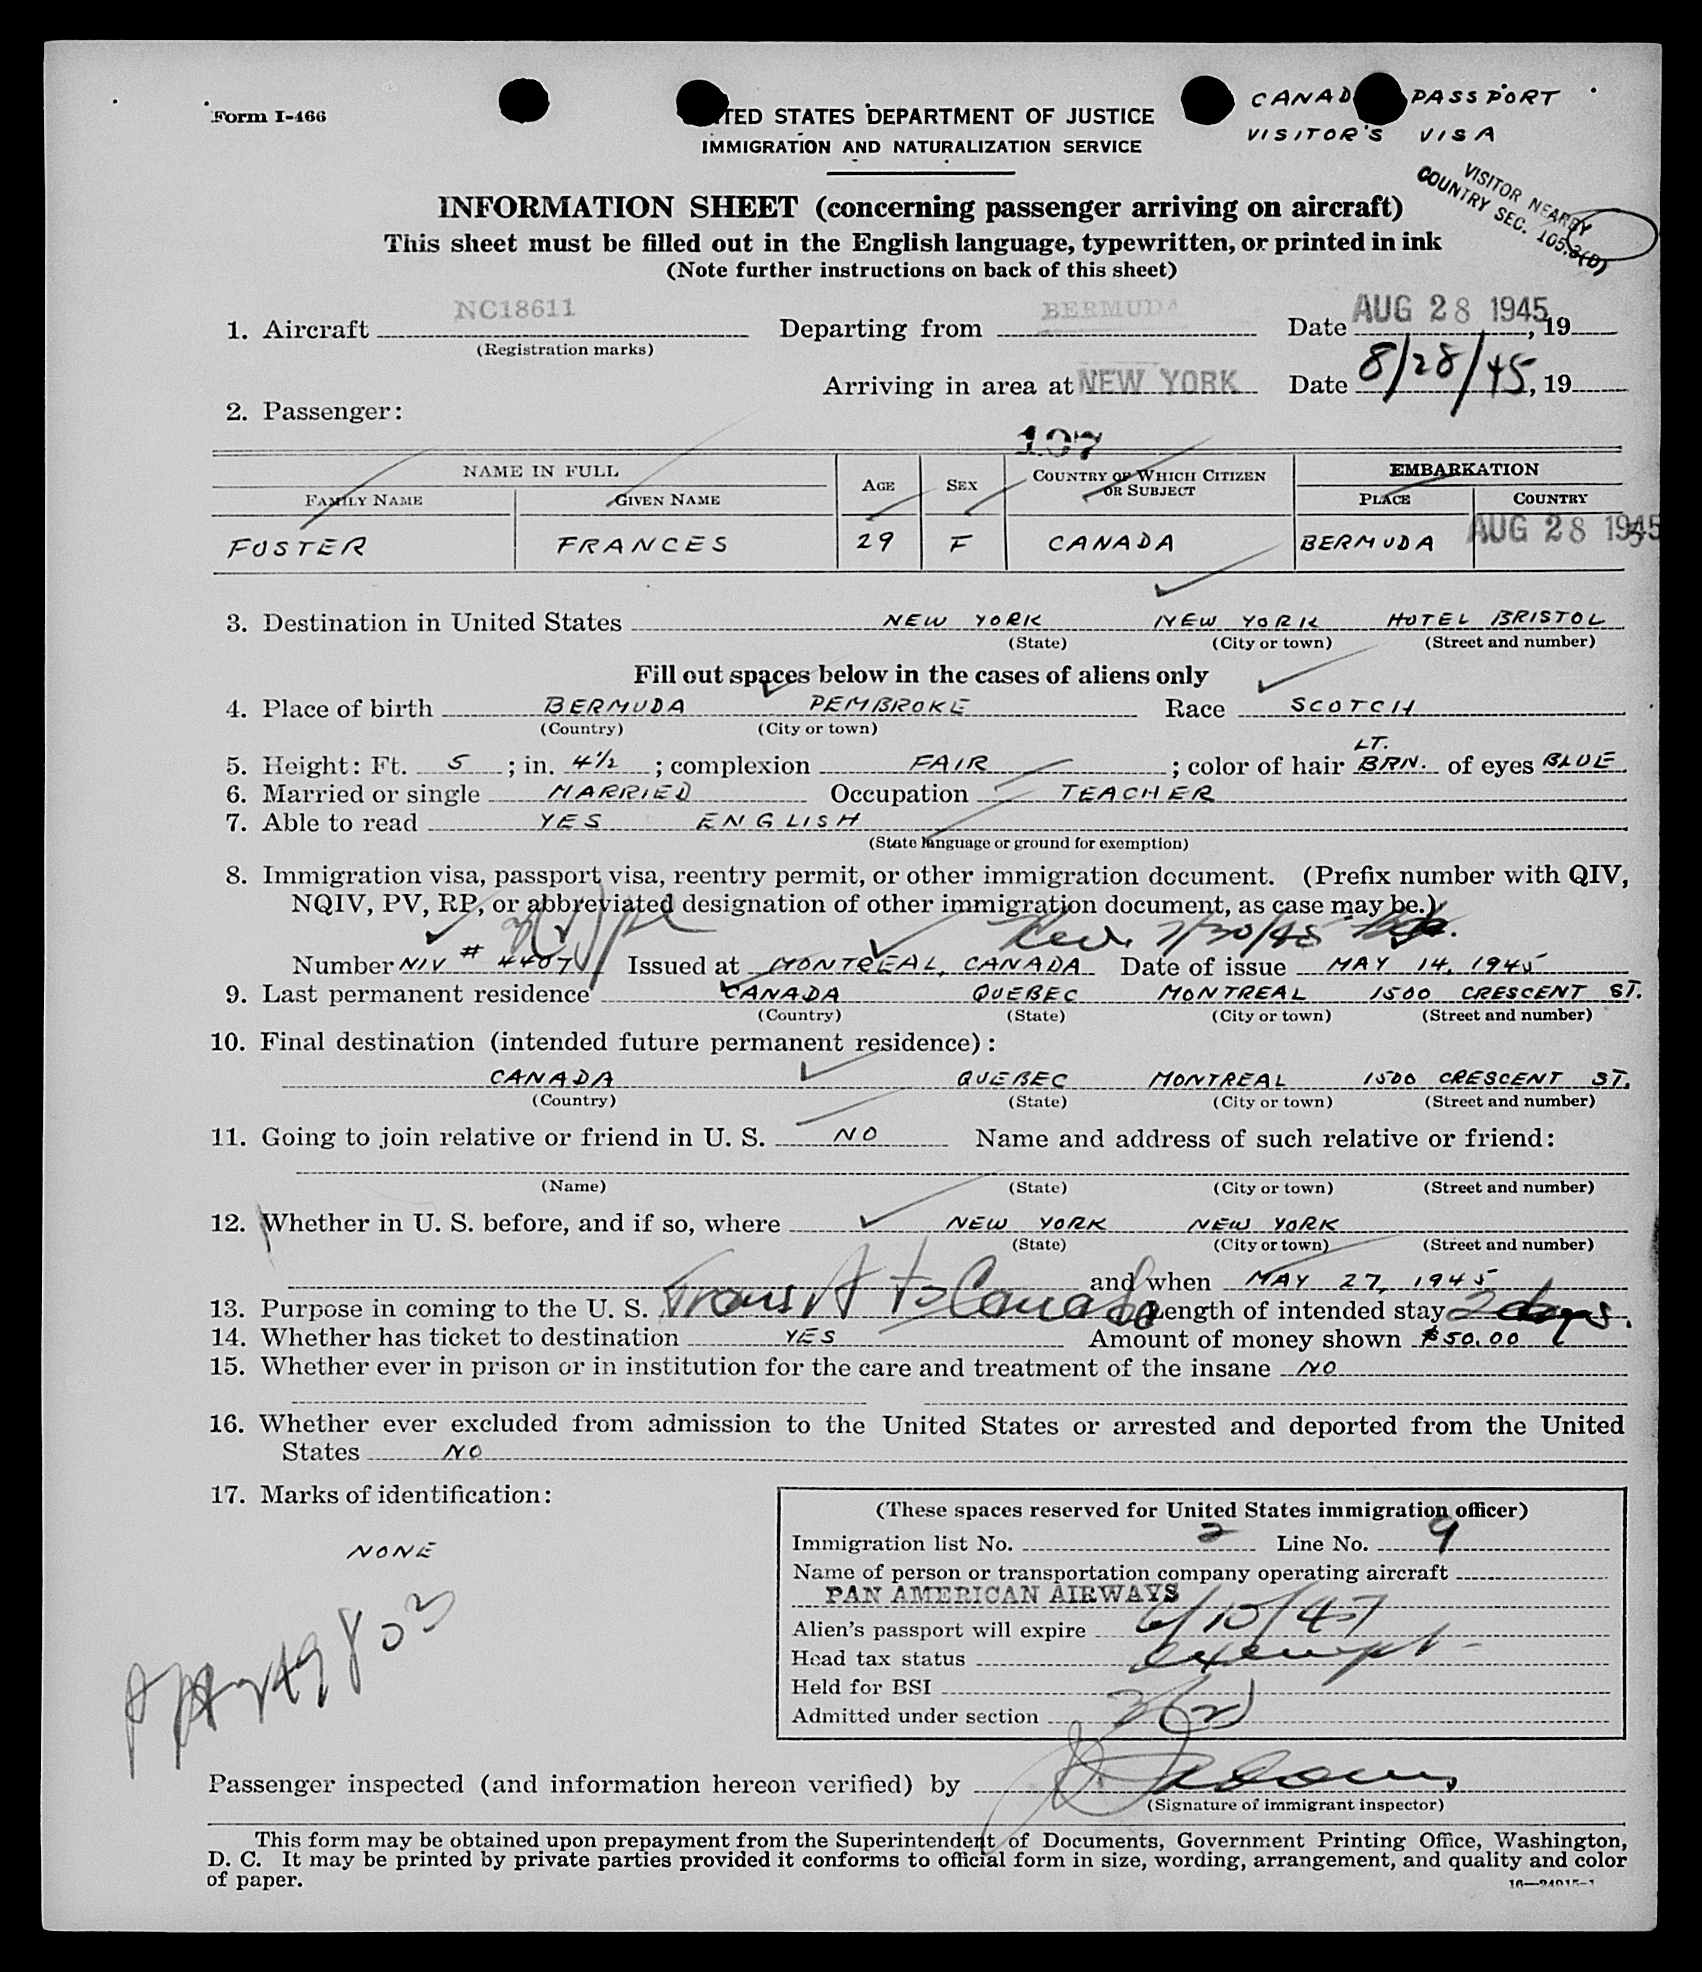 Form I-466
CANAD PASSPORT
VISITOR'S VISA
TED STATES DEPARTMENT OF JUSTICE
IMMIGRATION AND NATURALIZATION SERVICE
VISITOR NEARBY
COUNTRY SEC. 105.3(B)
INFORMATION SHEET (concerning passenger arriving on aircraft)
This sheet must be filled out in the English language, typewritten, or printed in ink
(Note further instructions on back of this sheet)
1. Aircraft NC18611 Departing from BERMUDA Date AUG 28 1945, 19
(Registration marks)
Arriving in area at NEW YORK Date 8/28/45, 19
2. Passenger:
107
NAME IN FULL AGE SEX COUNTRY OF WHICH CITIZEN OR SUBJECT EMBARKATION
FAMILY NAME GIVEN NAME PLACE COUNTRY
AUG 28 1945
FOSTER FRANCES 29 F CANADA BERMUDA
3. Destination in United States NEW YORK NEW YORK HOTEL BRISTOL
(State) (City or town) (Street and number)
Fill out spaces below in the cases of aliens only
4. Place of birth BERMUDA PEMBROKE Race SCOTCH
(Country) (City or town)
5. Height: Ft. 5; in. 4½; complexion FAIR; color of hair LT. BRN. of eyes BLUE
6. Married or single MARRIED Occupation TEACHER
7. Able to read YES ENGLISH
(State language or ground for exemption)
8. Immigration visa, passport visa, reentry permit, or other immigration document. (Prefix number with QIV,
NQIV, PV, RP, or abbreviated designation of other immigration document, as case may be.)
7/30/45
Number NIV # 4407 Issued at MONTREAL, CANADA Date of issue MAY 14, 1945
9. Last permanent residence CANADA QUEBEC MONTREAL 1500 CRESCENT ST.
(Country) (State) (City or town) (Street and number)
10. Final destination (intended future permanent residence):
CANADA QUEBEC MONTREAL 1500 CRESCENT ST.
(Country) (State) (City or town) (Street and number)
11. Going to join relative or friend in U. S. NO Name and address of such relative or friend:
(Name) (State) (City or town) (Street and number)
12. Whether in U. S. before, and if so, where NEW YORK NEW YORK
(State) (City or town) (Street and number)
and when MAY 27, 1945
13. Purpose in coming to the U. S. Transit to Canada Length of intended stay 2 days.
14. Whether has ticket to destination YES Amount of money shown $50.00
15. Whether ever in prison or in institution for the care and treatment of the insane NO
16. Whether ever excluded from admission to the United States or arrested and deported from the United
States NO
17. Marks of identification:
NONE
(These spaces reserved for United States immigration officer)
Immigration list No. 2 Line No. 9
Name of person or transportation company operating aircraft
PAN AMERICAN AIRWAYS
Alien's passport will expire 6/10/47
Head tax status exempt
Held for BSI
Admitted under section 3(2)
Passenger inspected (and information hereon verified) by
(Signature of immigrant inspector)
This form may be obtained upon prepayment from the Superintendent of Documents, Government Printing Office, Washington,
D. C. It may be printed by private parties provided it conforms to official form in size, wording, arrangement, and quality and color
of paper.
16—24915-1